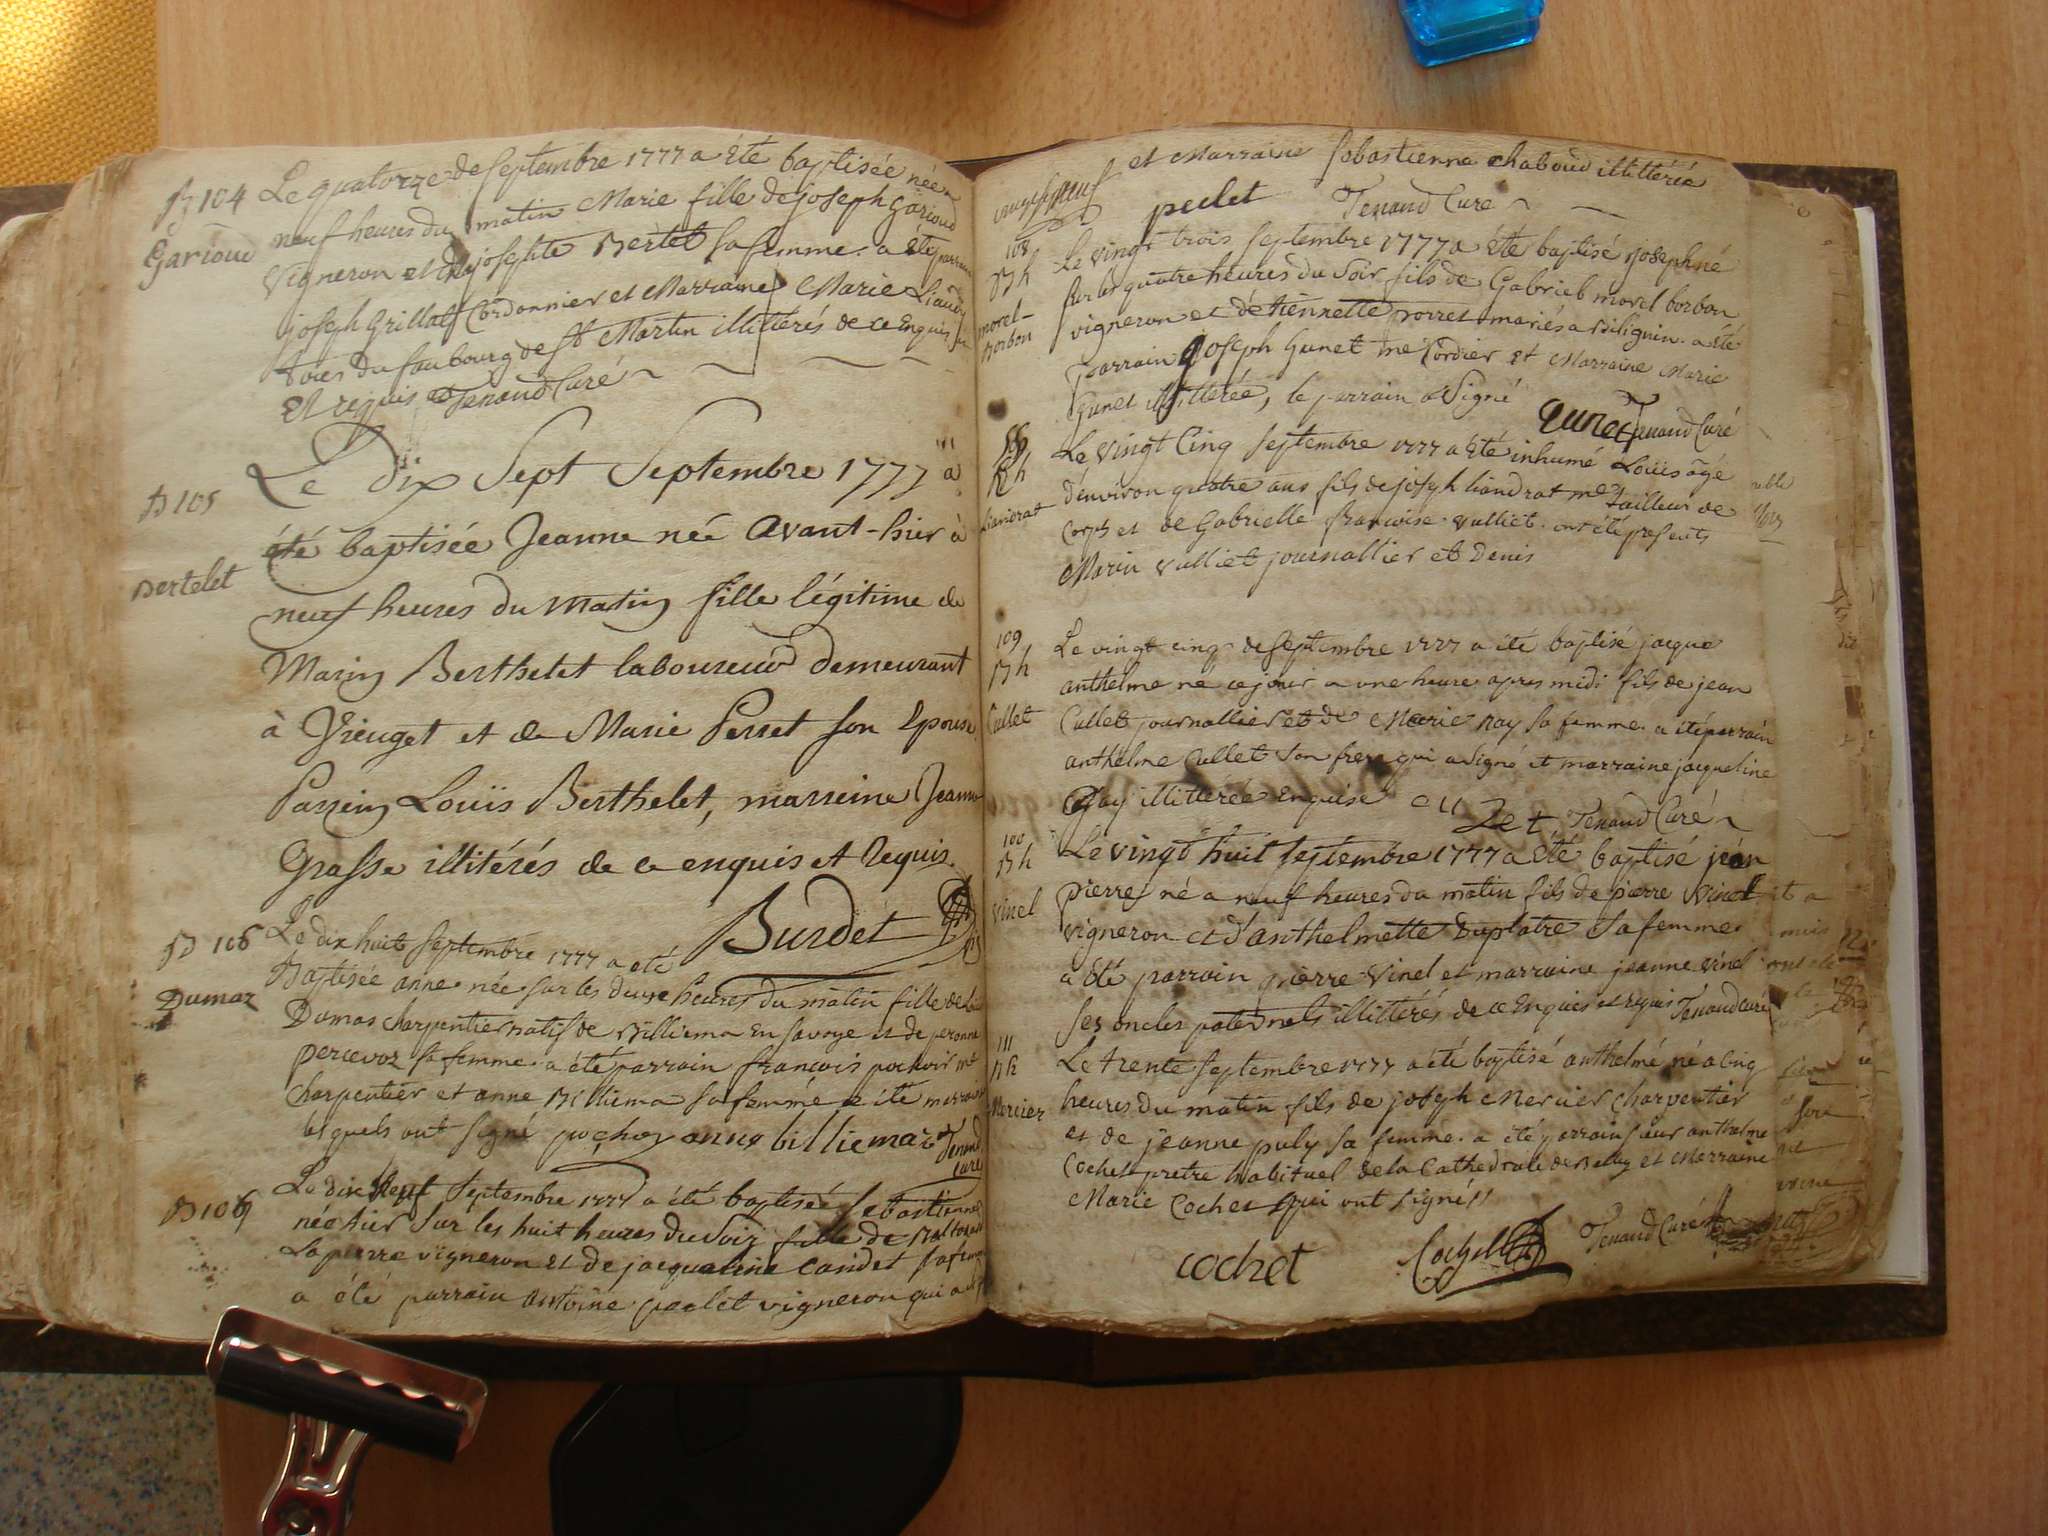 B 104
Garioud
Le quatorze de Septembre 1777 a été baptisée née a
neuf heures du matin Marie fille de joseph Garioud
Vigneron et de josephte Bertet sa femme. a été parrain
joseph Grillat Cordonnier et Marraine Marie
tous du faubourg de St Martin illittérés de ce Enquis
Et requis Tenaud Curé
B 105
Bertelet
Le dix Sept Septembre 1777 a
été baptisée Jeanne née avant-hier à
neuf heures du matin fille légitime de
Marin Berthelet laboureur demeurant
à Vieuget et de Marie Perret son Epouse
Parrein Louis Berthelet, marreine Jeanne
Grasse illitérés de ce enquis et Requis.
Burdet
B 106
Dumaz
Le dix huit Septembre 1777 a été
Baptisée anne née sur les heures du matin fille de
Dumas charpentier natif de Billiema En Savoye et de peronne
percevoz sa femme. a été parrain françois pochoir me
charpentier et anne Billiema sa femme a été marraine
lesquels ont signé pochoy anne billiemaz Tenaud
curé
B 106
Le dix Neuf Septembre 1777 a été baptisée Sebastienne
née hier sur les huit heures du Soir fille de
Lapierre vigneron et de jacqueline Candet sa femme
a été parrain antoine peclet vigneron qui a
et Marraine Sebastienne chaboud illittérée
peclet Tenaud Curé
108
Bh
morel-
Borbon
Le vingt trois Septembre 1777 a été baptisé joseph né
sur les quatre heures du Soir fils de Gabriel morel borbon
vigneron et d'étiennette poirret mariés a Billignin. a été
parrain Joseph Gunet me Cordier et Marraine Marie
Gunet illittérée, le parrain a Signé
Gunet Tenaud Curé
Liandrat
Le vingt Cinq Septembre 1777 a été inhumé Louis âgé
d'environ quatre ans fils de joseph liandrat me tailleur de
Corps et de Gabrielle françoise vulliet. ont été présents
Marin vulliet journallier et Denis
109
Bh
Cullet
Le vingt cinq de Septembre 1777 a été baptisé jacque
anthelme né ce jour a une heure apres midi fils de jean
Cullet journallier et de Marie Ray sa femme. a été parrain
anthelme Cullet Son frere qui a Signé et marraine jacqueline
Gay illittérée Enquise Cullet Tenaud Curé
Bh
Vinel
Le vingt huit Septembre 1777 a été baptisé jean
pierre né a neuf heures du matin fils de pierre Vinel
vigneron et d'anthelmette Duplatre Sa femme
a été parrain pierre Vinel et marraine jeanne vinel
Ses oncles paternels illittérés de ce Enquis et requis Tenaud curé
111
Bh
Mercier
Le trente Septembre 1777 a été baptisé anthelme né a Cinq
heures du matin fils de joseph Mercier charpentier
et de jeanne puly sa femme. a été parrain sieur anthelme
Cochet pretre habituel de la Cathedrale de Belley et Marraine
Marie Cochet qui ont signé
cochet Cochet Tenaud Curé